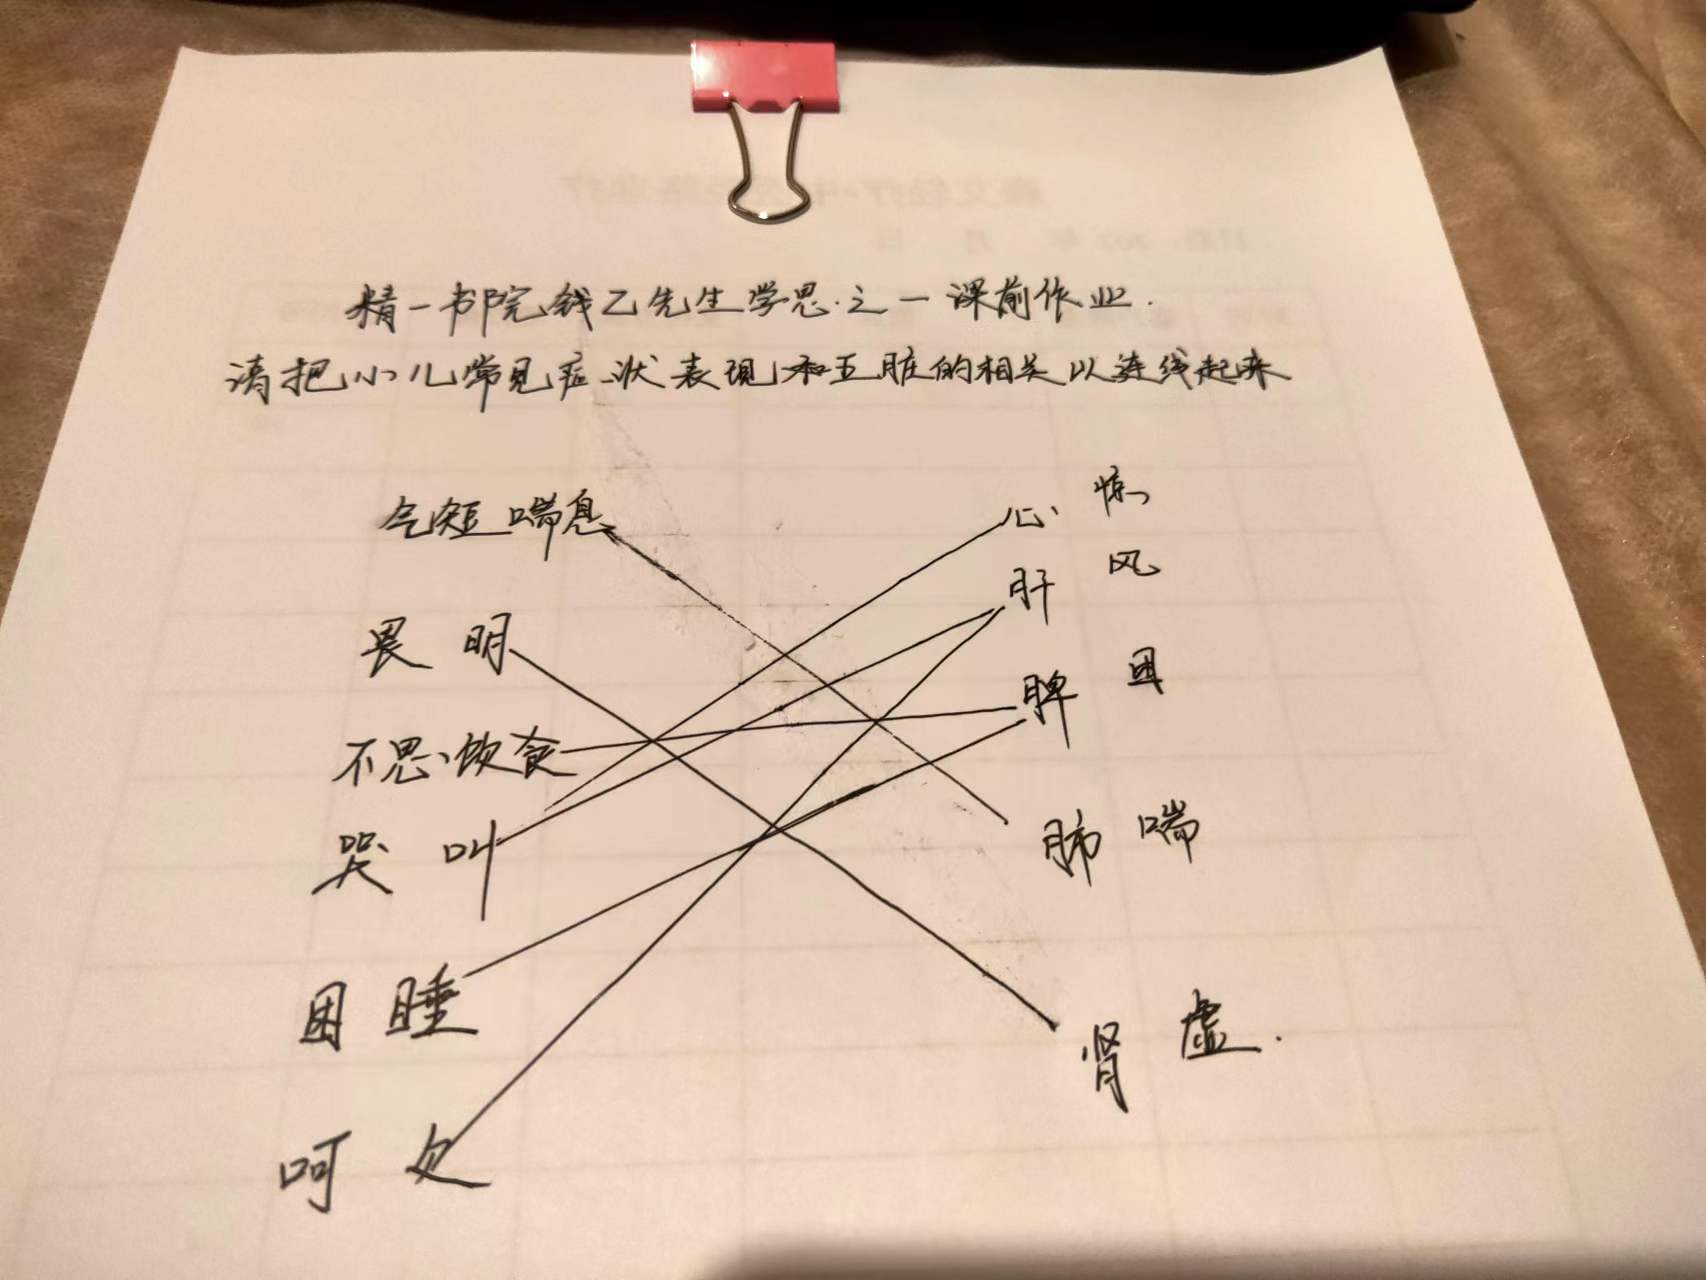 精一书院钱乙先生学思之一课前作业.
请把小儿常见症状表现和五脏的相关以连线起来
气短喘息
心 惊
肝 风
畏明
脾 困
不思饮食
哭叫
肺 喘
困睡
肾 虚.
呵欠